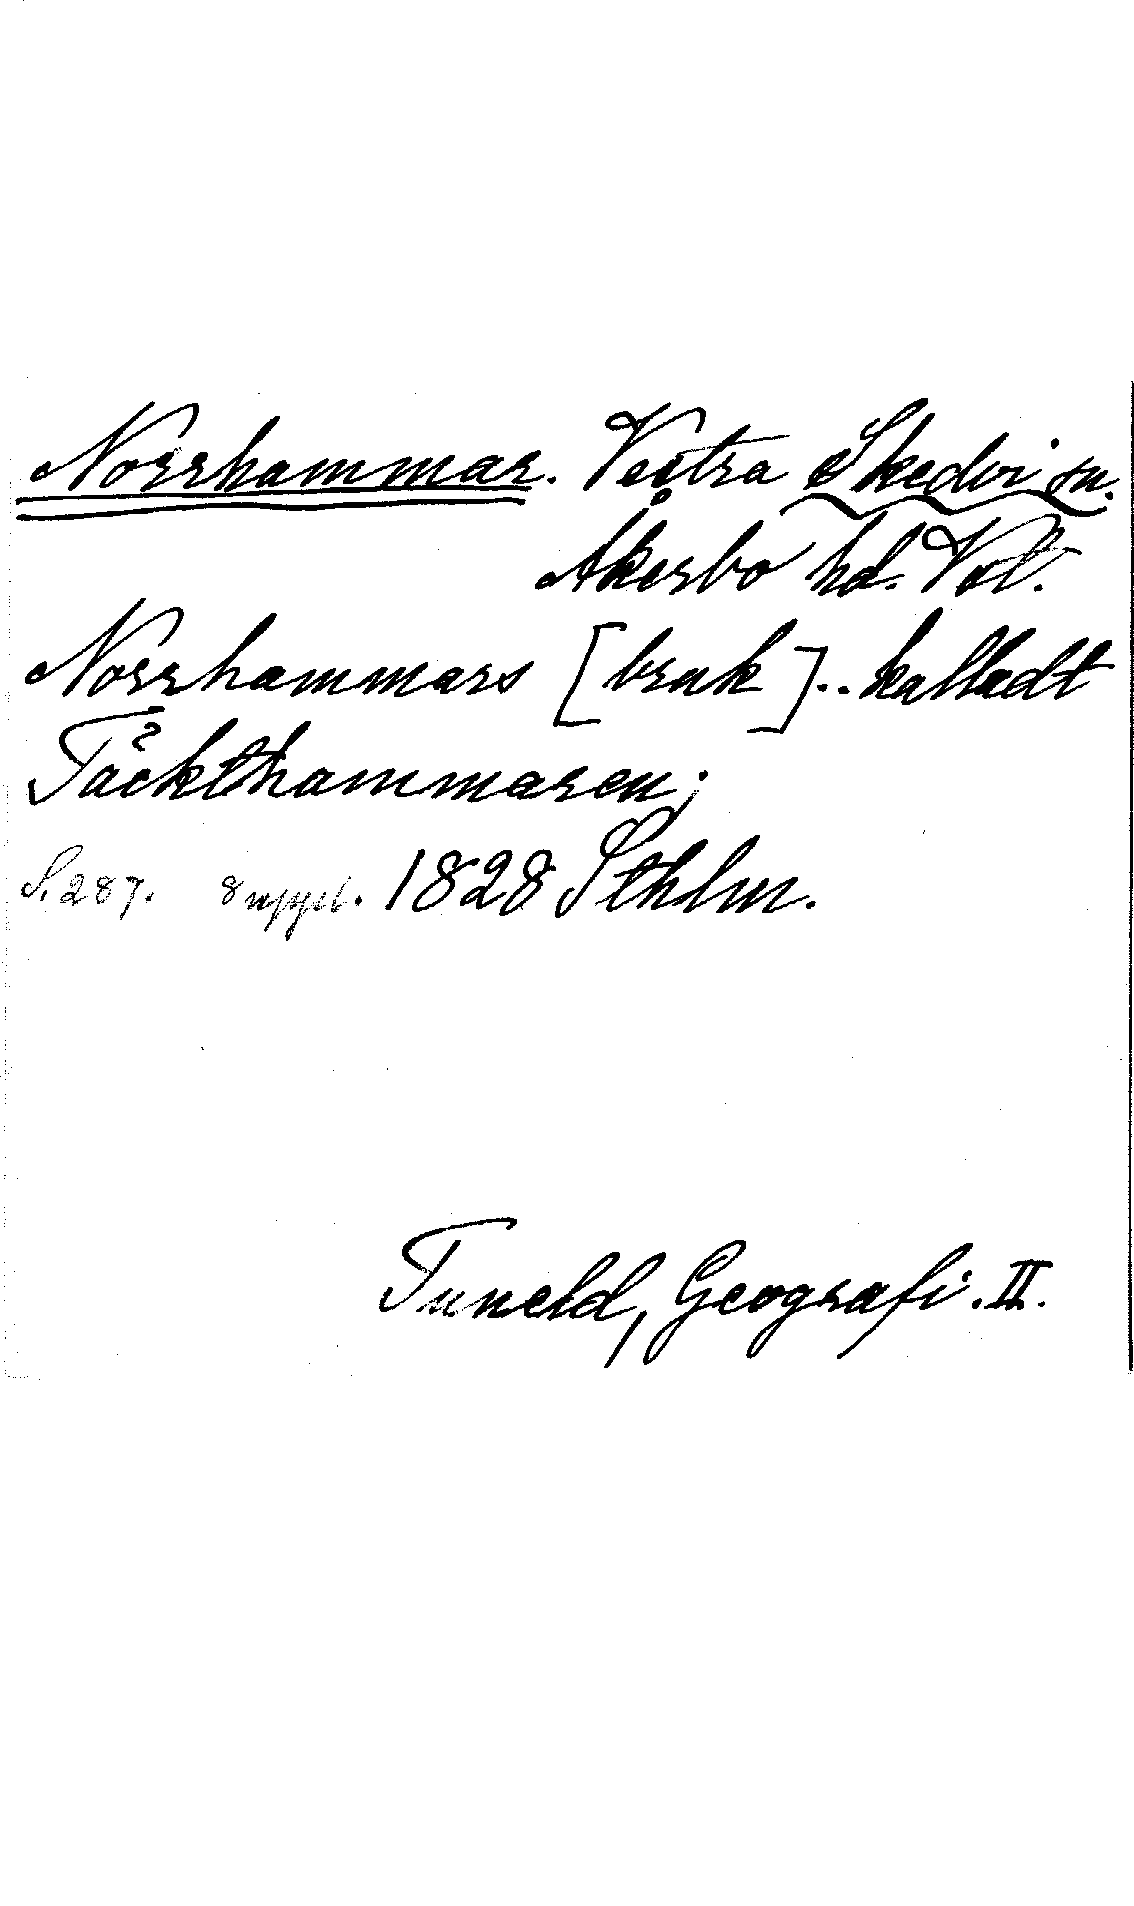 Norrhammar. Vestra Skedvi sn.
Åkerbo hd. Vstl.
Norrhammars [bruk].. kalladt
Täckthammaren;
S. 287. 8 uppl. 1828 Sthlm.
Tuneld, Geografi. II.